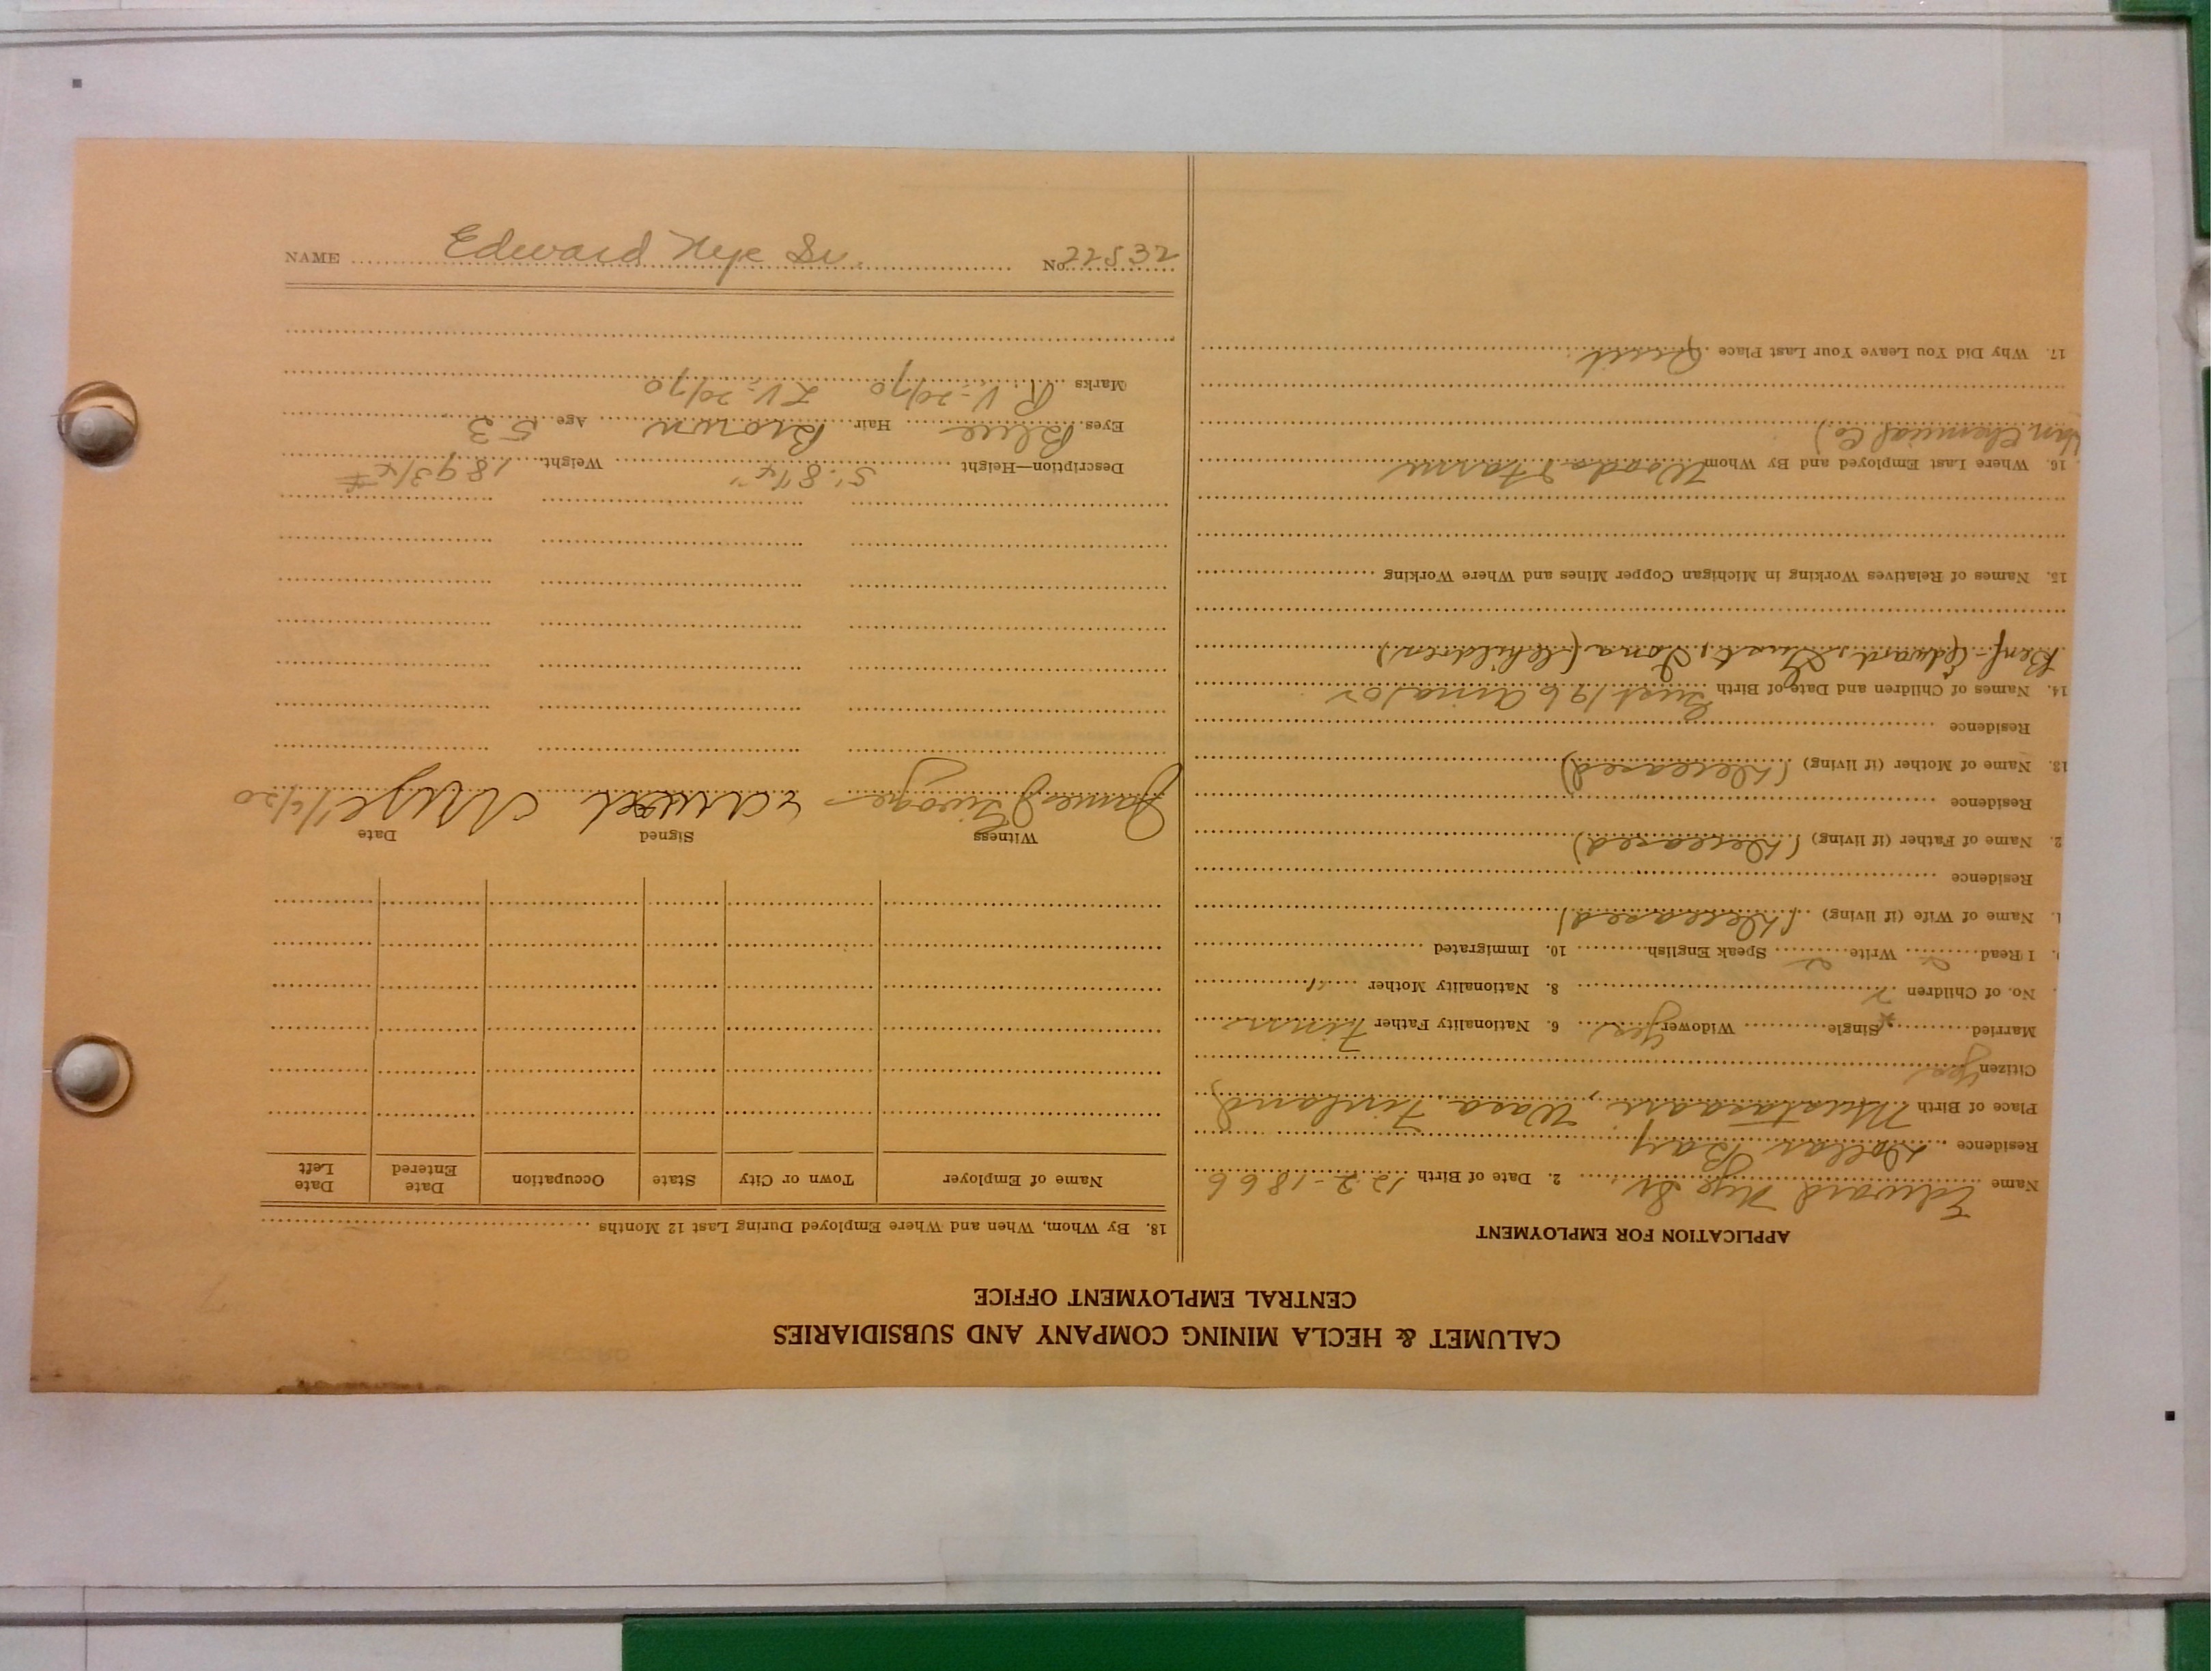 CALUMET & HECLA MINING COMPANY AND SUBSIDIARIES
CENTRAL EMPLOYMENT OFFICE
APPLICATION FOR EMPLOYMENT
Name Edward Nye Sr. 2. Date of Birth 12-2-1866
Residence Dollar Bay
Place of Birth Mustasaari, Wasa Finland
Citizen yes
Married Single Widower yes 6. Nationality Father Finn
No. of Children 2 8. Nationality Mother "
I Read Write Speak English 10. Immigrated
Name of Wife (if living) (Deceased)
Residence
2. Name of Father (if living) (Deceased)
Residence
13. Name of Mother (if living) (Deceased)
Residence
14. Names of Children and Date of Birth
Benf- Edward, (Children)
15. Names of Relatives Working in Michigan Copper Mines and Where Working
16. Where Last Employed and By Whom Woods
Chemical Co)
17. Why Did You Leave Your Last Place Quit
18. By Whom, When and Where Employed During Last 12 Months
Name of Employer Town or City State Occupation Date Entered Date Left
Witness Signed Date
James Edward Nye 1/6/20
Description—Height 5'.8¼" Weight 189¾ #
Eyes Blue Hair Brown Age 53
Marks R V-20/70 L V-20/70
NAME Edward Nye Sr. No. 22532